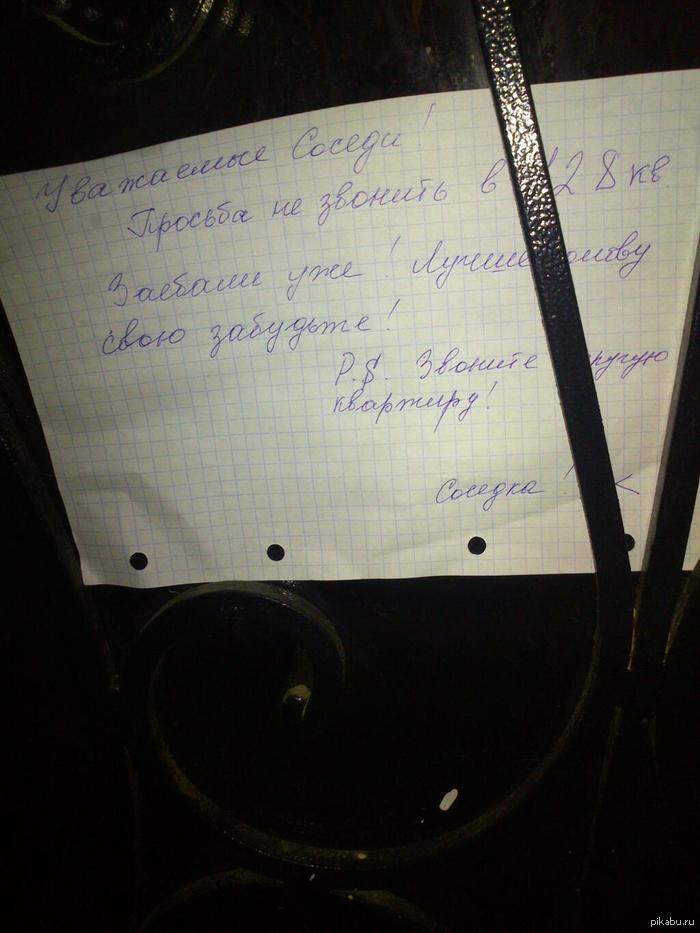 Уважаемые Соседи!
Просьба не звонить в 128 кв.
Заебали уже! Лучше
свою забудьте!
P.S. Звоните другую
квартиру!
Соседка!
pikabu.ru